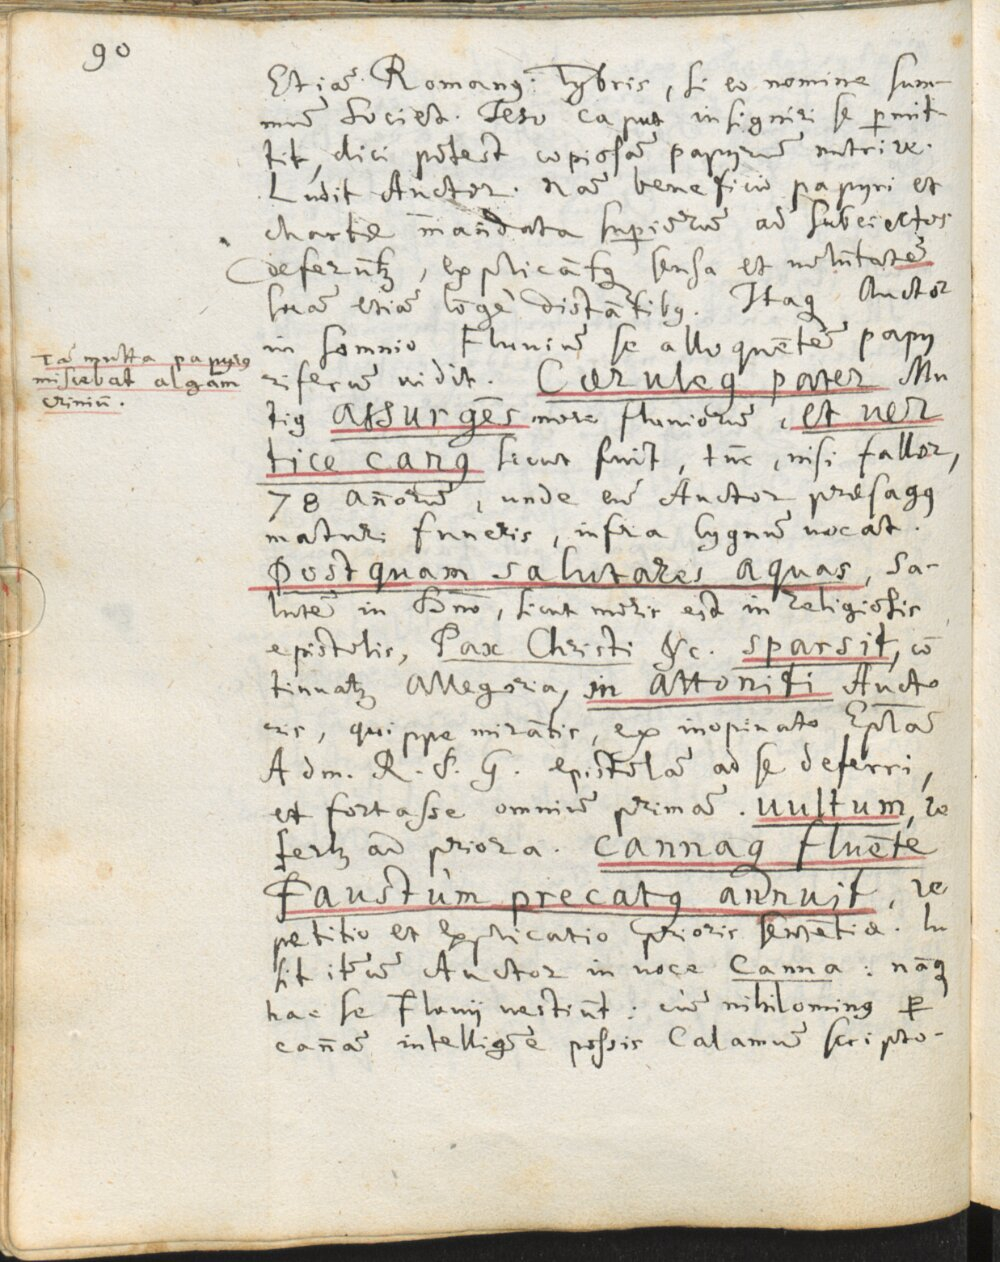 90
Etiã Romanꝰ Tybris, si eo nomine sum-
mũ Societ. Jesu caput insigniri se ꝑmit-
tit, dici potest copiosã papyrũ nutrire.
Ludit Auctor. Nã beneficio papyri et
chartæ mandata supiorũ ad subiectos
deferunt, explicãtq sensa et uoluntatẽ
suã etiã longè distãtibꝰ. Itaq Auctor
in somnio Fluuiũ se alloquẽtẽ papy
riferũ uidit. Cæruleꝰ pater Mu
tiꝰ assurgẽs more fluuiorũ, et uer
tice canꝰ sicut fuit, tũc, nisi fallor,
78 añorũ, unde eũ Auctor præsagꝰ
maturi funeris, infra cygnũ uocat.
Postquam salutares aquas, sa-
lutẽ in Dño, sicut moris est in religiosis
epistolis, Pax Christi &c. sparsit, cõ
tinuatꝫ Allegoria, in attoniti Aucto
ris, quippe mirãtis, ex inopinato Eplã
Adm. R. P. G. epistolã ad se deferri,
et fortasse omniũ primã. uultum, re
fertꝫ ad priora. cannaq fluẽte
Faustùm precatꝰ annuit, re
petitio et explicatio prioris sententiæ. lu
sit iterũ Auctor in uoce Canna: nãq
hac se Fluuij uestiũt: cũ nihilominꝰ ꝑ
cañã intelligere possis Calamũ scripto-
Tã multa papyrꝰ
miscebat algam
criniũ.